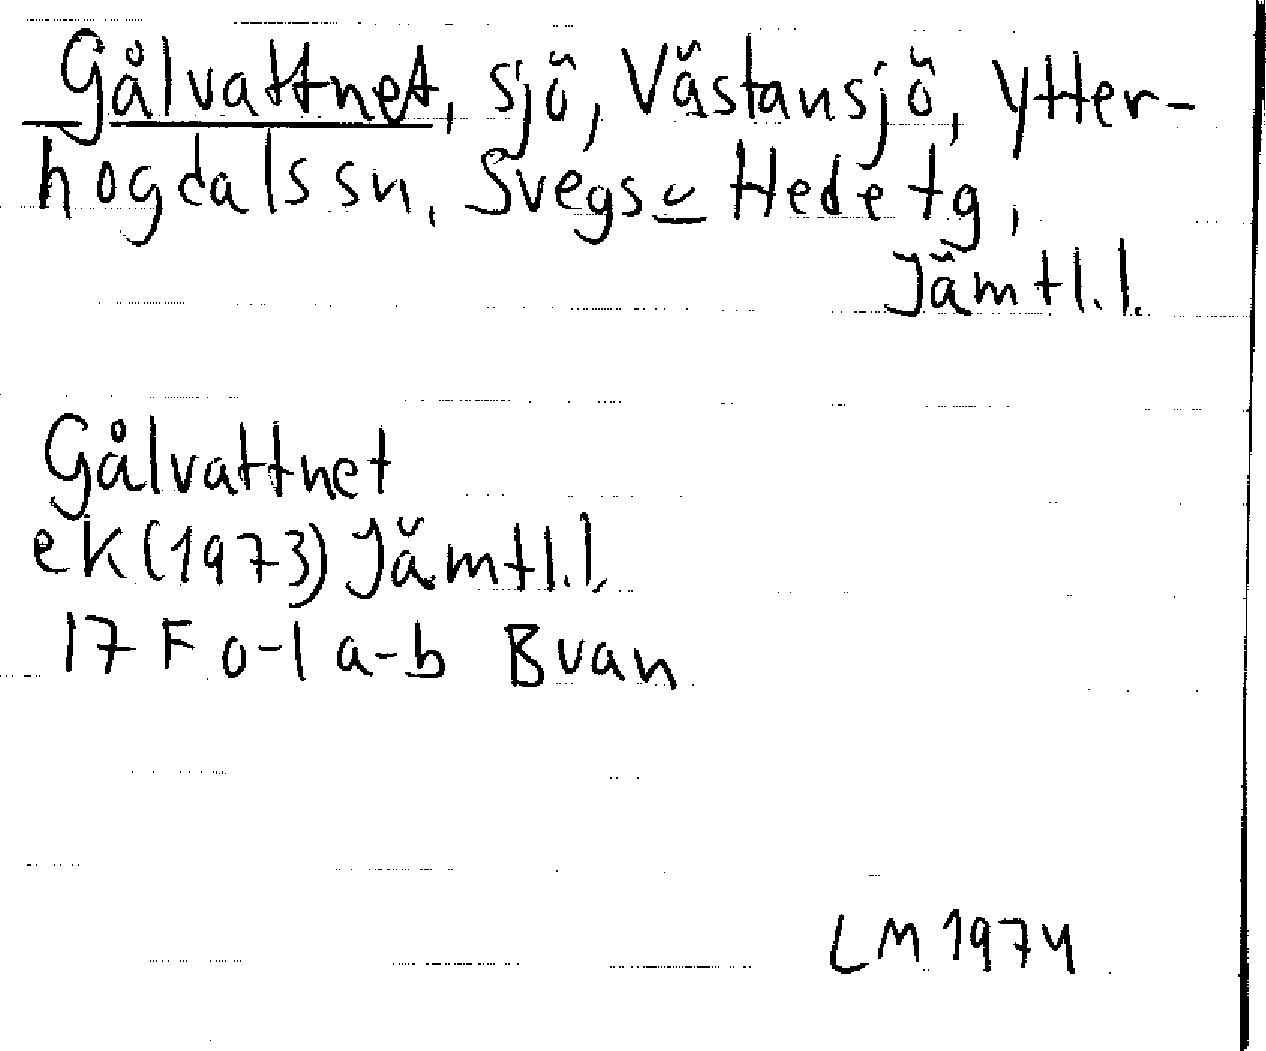 Gålvattnet, sjö, Västansjö, Ytter-
hogdals sn, Svegs o Hede tg,
Jämtl. l.
Gålvattnet
ek (1973) Jämtl. l.
17 F 0-1 a-b Bvan
LM 1974